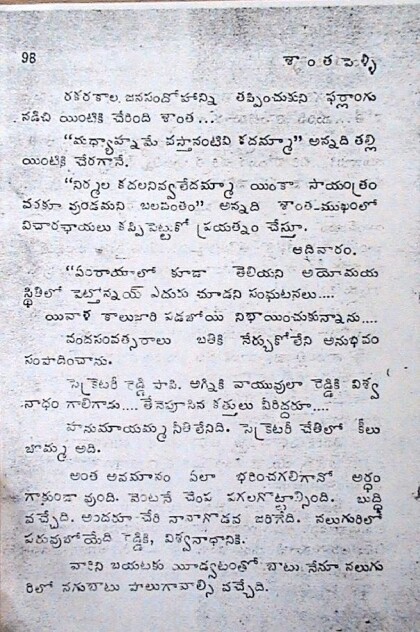 98
శాంత పెళ్ళి
రకరకాల జనసందోహాన్ని తప్పించుకుని ఫర్లాంగు
నడిచి యింటికి చేరింది శాంత...
“మధ్యాహ్నమే వస్తానంటివి కదమ్మా” అన్నది తల్లి
యింటికి చేరగానే.
“నిర్మల కదలనివ్వలేదమ్మా యింకా సాయంత్రం
వరకూ వుండమని బలవంతం” అన్నది శాంత-ముఖంలో
విచారఛాయలు కప్పిపెట్టుకో ప్రయత్నం చేస్తూ.
ఆదివారం.
కూడా తెలియని అయోమయ
స్థితిలో పెట్తోన్నయ్ ఎదురు చూడని సంఘటనలు....
యివాళ కాలుజారి పడబోయి నిభాయించుకున్నాను....
వందసంవత్సరాలు బతికి నేర్చుకోలేని అనుభవం
సంపాదించాను.
సెక్రెటరీ రెడ్డి పాపి. అగ్నికి వాయువులా రెడ్డికి విశ్వ
నాధం గాలిగాడు.... తేనెపూసిన కత్తులు వీరిద్దరూ....
హనుమాయమ్మ నీతిలేనిది. సెక్రెటరీ చేతిలో కీలు
బొమ్మ అది.
అంత అవమానం ఏలా భరించగలిగానో అర్థం
గాకుండా వుంది. వెంటనే చెంప పగలగొట్టాల్సింది. బుద్ధి
వచ్చేది. అందరూ చేరి నానాగొడవ జరిగేది. నలుగురిలో
పరువుబోయేది రెడ్డికి, విశ్వనాధానికి.
వాణ్ని బయటకు యీడ్వటంతో బాటు నేనూ నలుగు
రిలో నగుబాటు పాలుగావాల్సి వచ్చేది.